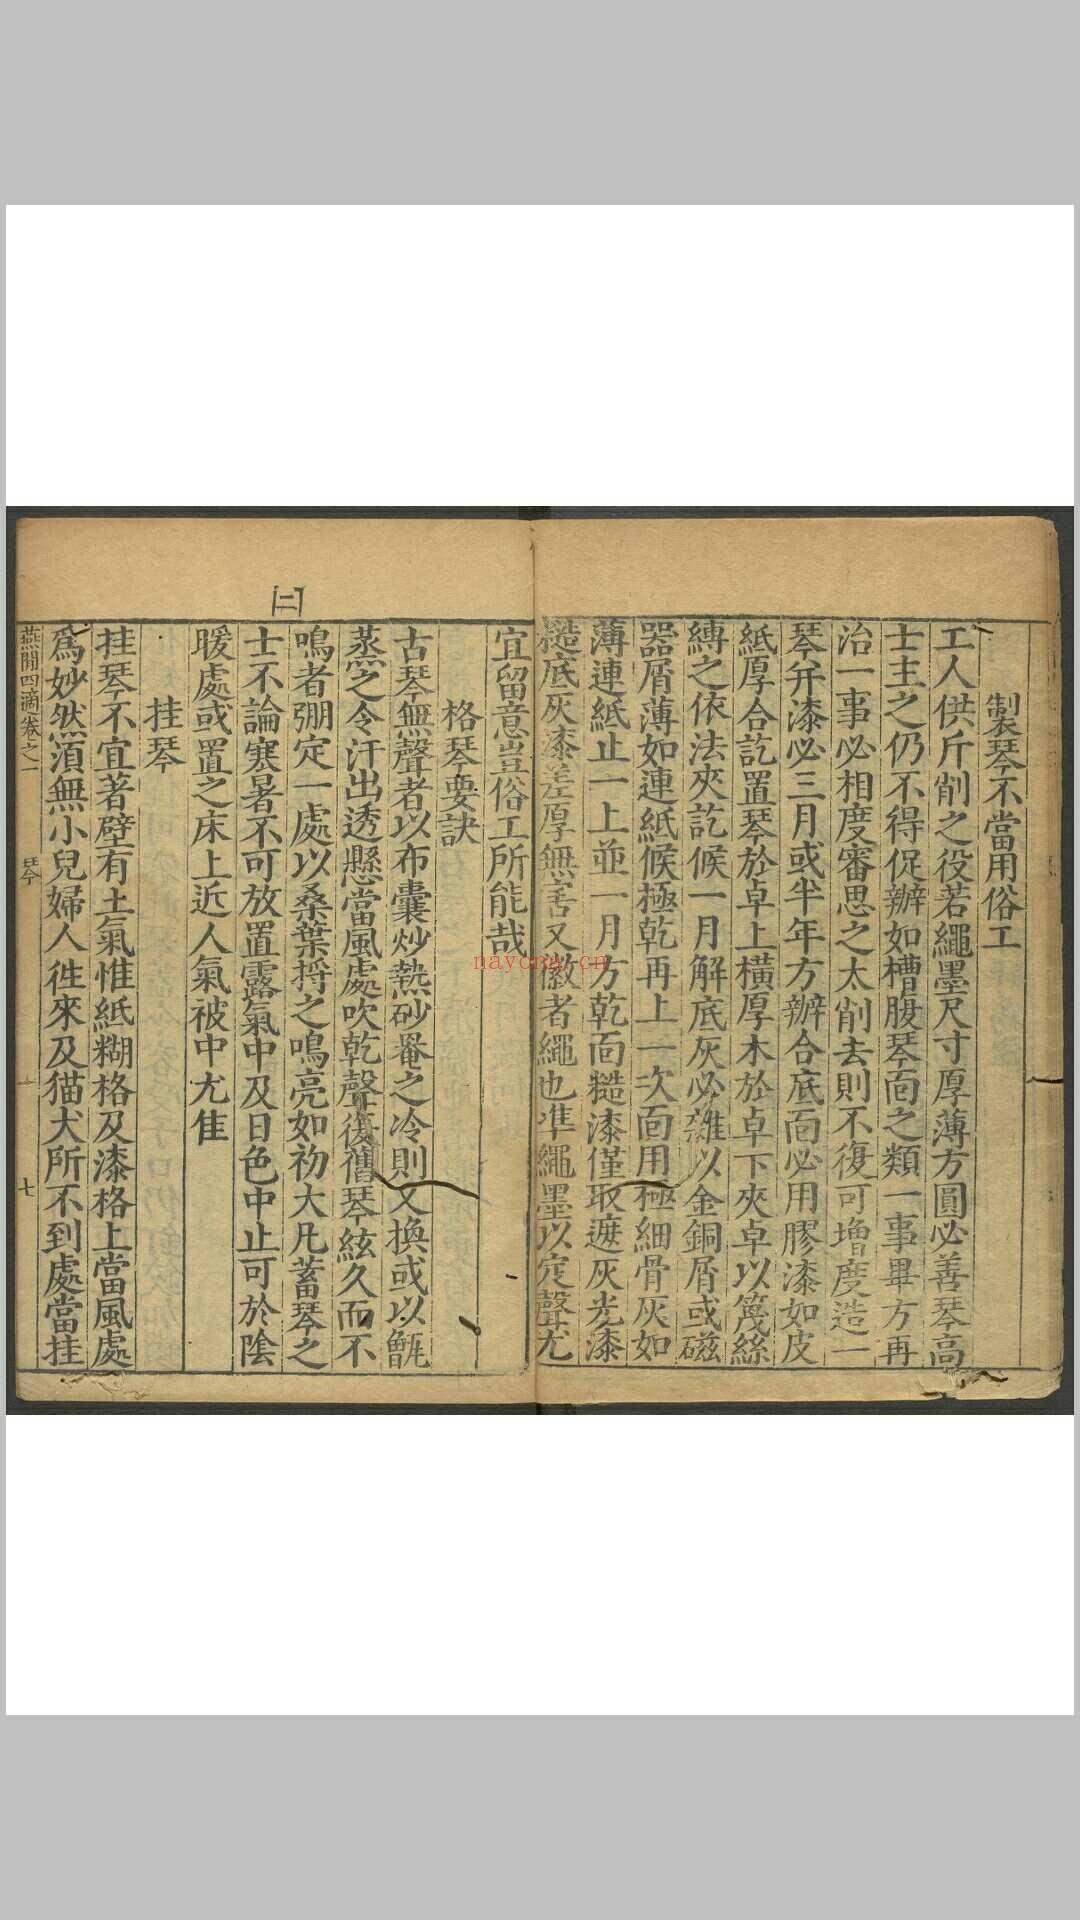 製琴不當用俗工
工人供斤削之役若繩墨尺寸厚薄方圓必善琴高
士主之仍不得促辦如槽腹琴面之類一事畢方再
治一事必相度審思之太削去則不復可增度造一
琴并漆必三月或半年方辦合底面必用膠漆如皮
紙厚合訖置琴於卓上橫厚木於卓下夾卓以篾絲
縛之依法夾訖候一月解底灰必雜以金銅屑或磁
器屑薄如連紙候極乾再上一次面用極細骨灰如
薄連紙止一上並一月方乾面糙漆僅取遮灰光漆
糙底灰漆差厚無害又徽者繩也準繩墨以定聲尤
宜留意豈俗工所能哉
格琴要訣
古琴無聲者以布囊炒熱砂罨之冷則又換或以甑
蒸之令汗出透懸當風處吹乾聲復舊琴絃久而不
鳴者弸定一處以桑葉捋之鳴亮如初大凡蓄琴之
士不論寒暑不可放置露氣中及日色中止可於陰
暖處或置之床上近人氣被中尤隹
挂琴
挂琴不宜著壁有土氣惟紙糊格及漆格上當風處
爲妙然須無小兒婦人徃來及猫犬所不到處當挂
燕閒四適卷之一 琴 七
二
nayona.cn